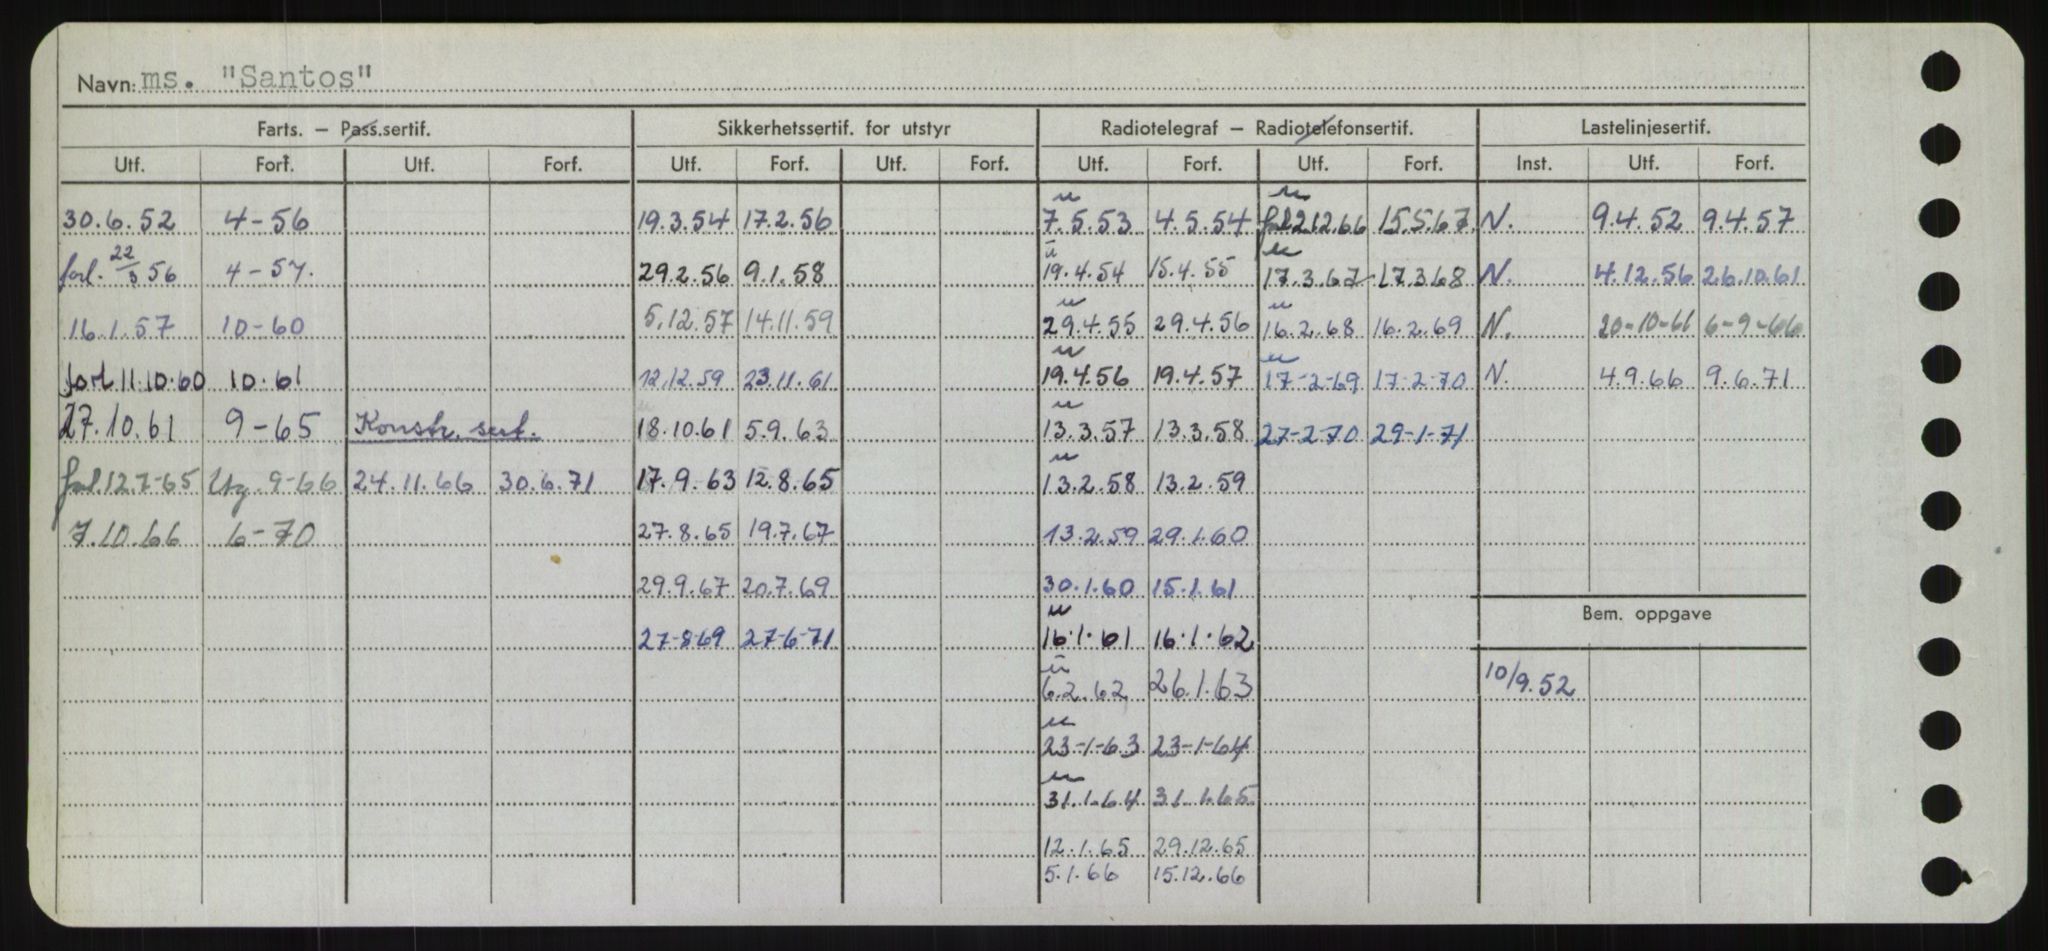 Navn: ms. "Santos"
Farts. – Pass.sertif. Sikkerhetssertif. for utstyr Radiotelegraf – Radiotelefonsertif. Lastelinjesertif.
Utf. Forf. Utf. Forf. Utf. Forf. Utf. Forf. Utf. Forf. Utf. Forf. Inst. Utf. Forf.
u u
30.6.52 4-56 19.3.54 17.2.56 7.5.53 4.5.54 forl. 2.12.66 15.5.67. N. 9.4.52 9.4.57
u u
forl. 22/3 56 4-57. 29.2.56 9.1.58 19.4.54 15.4.55 17.3.67 17.3.68 N. 4.12.56 26.10.61
u u
16.1.57 10-60 5.12.57 14.11.59 29.4.55 29.4.56 16.2.68 16.2.69 N. 20-10-61 6-9-66
u u
forl 11.10.60 10.61 12.12.59 23.11.61 19.4.56 19.4.57 17-2-69 17-2-70 N. 4.9.66 9.6.71
u
27.10.61 9-65 Konstr. sert. 18.10.61 5.9.63 13.3.57 13.3.58 27-2-70 29-1-71
u
forl. 12.7-65 Utg. 9-66 24.11.66 30.6.71 17.9.63 12.8.65 13.2.58 13.2.59
7.10.66 6-70 27.8.65 19.7.67 13.2.59 29.1.60
29.9.67 20.7.69 30.1.60 15.1.61
Bem. oppgave
u
27-8-69 27-6-71 16.1.61 16.1.62
u
6.2.62 26.1.63 10/9.52
u
23-1-63 23-1-64
u
31.1.64 31.1.65
12.1.65 29.12.65
5.1.66 15.12.66